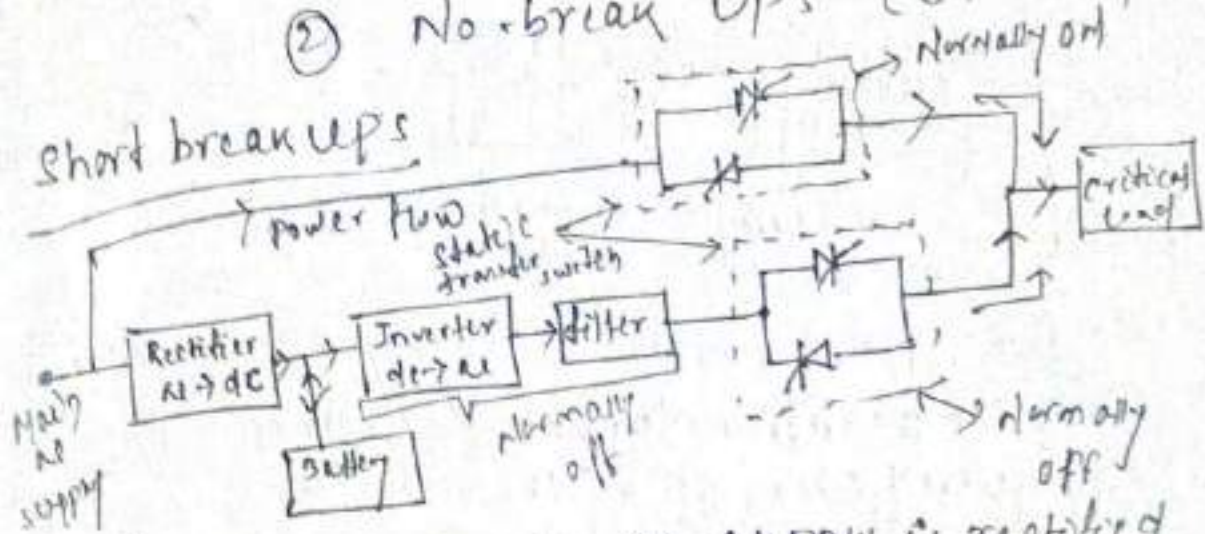 ② No.break UPS
Normally on
Short break UPS
power flow
static
transfer switch
critical
load
Rectifier
ac → dc
Inverter
dc → ac
filter
Main
ac
supply
Battery
Normally
off
Normally
off
is rectified